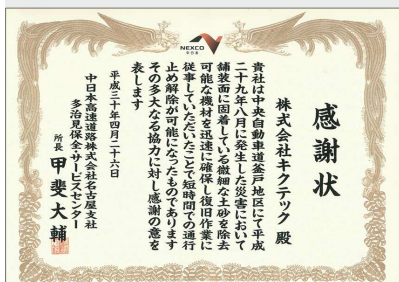 NEXCO
中日本
感謝状
株式会社キクテック 殿
貴社は中央自動車道釜戸地区にて平成
二十九年八月に発生した災害において
舗装面に固着している微細な土砂を除去
可能な機材を迅速に確保し復旧作業に
従事していただいたことで短時間での通行
止め解除が可能になったものであります
その多大なる協力に対し感謝の意を
表します
平成三十年四月二十六日
中日本高速道路株式会社名古屋支社
多治見保全・サービスセンター
所長 甲斐大輔